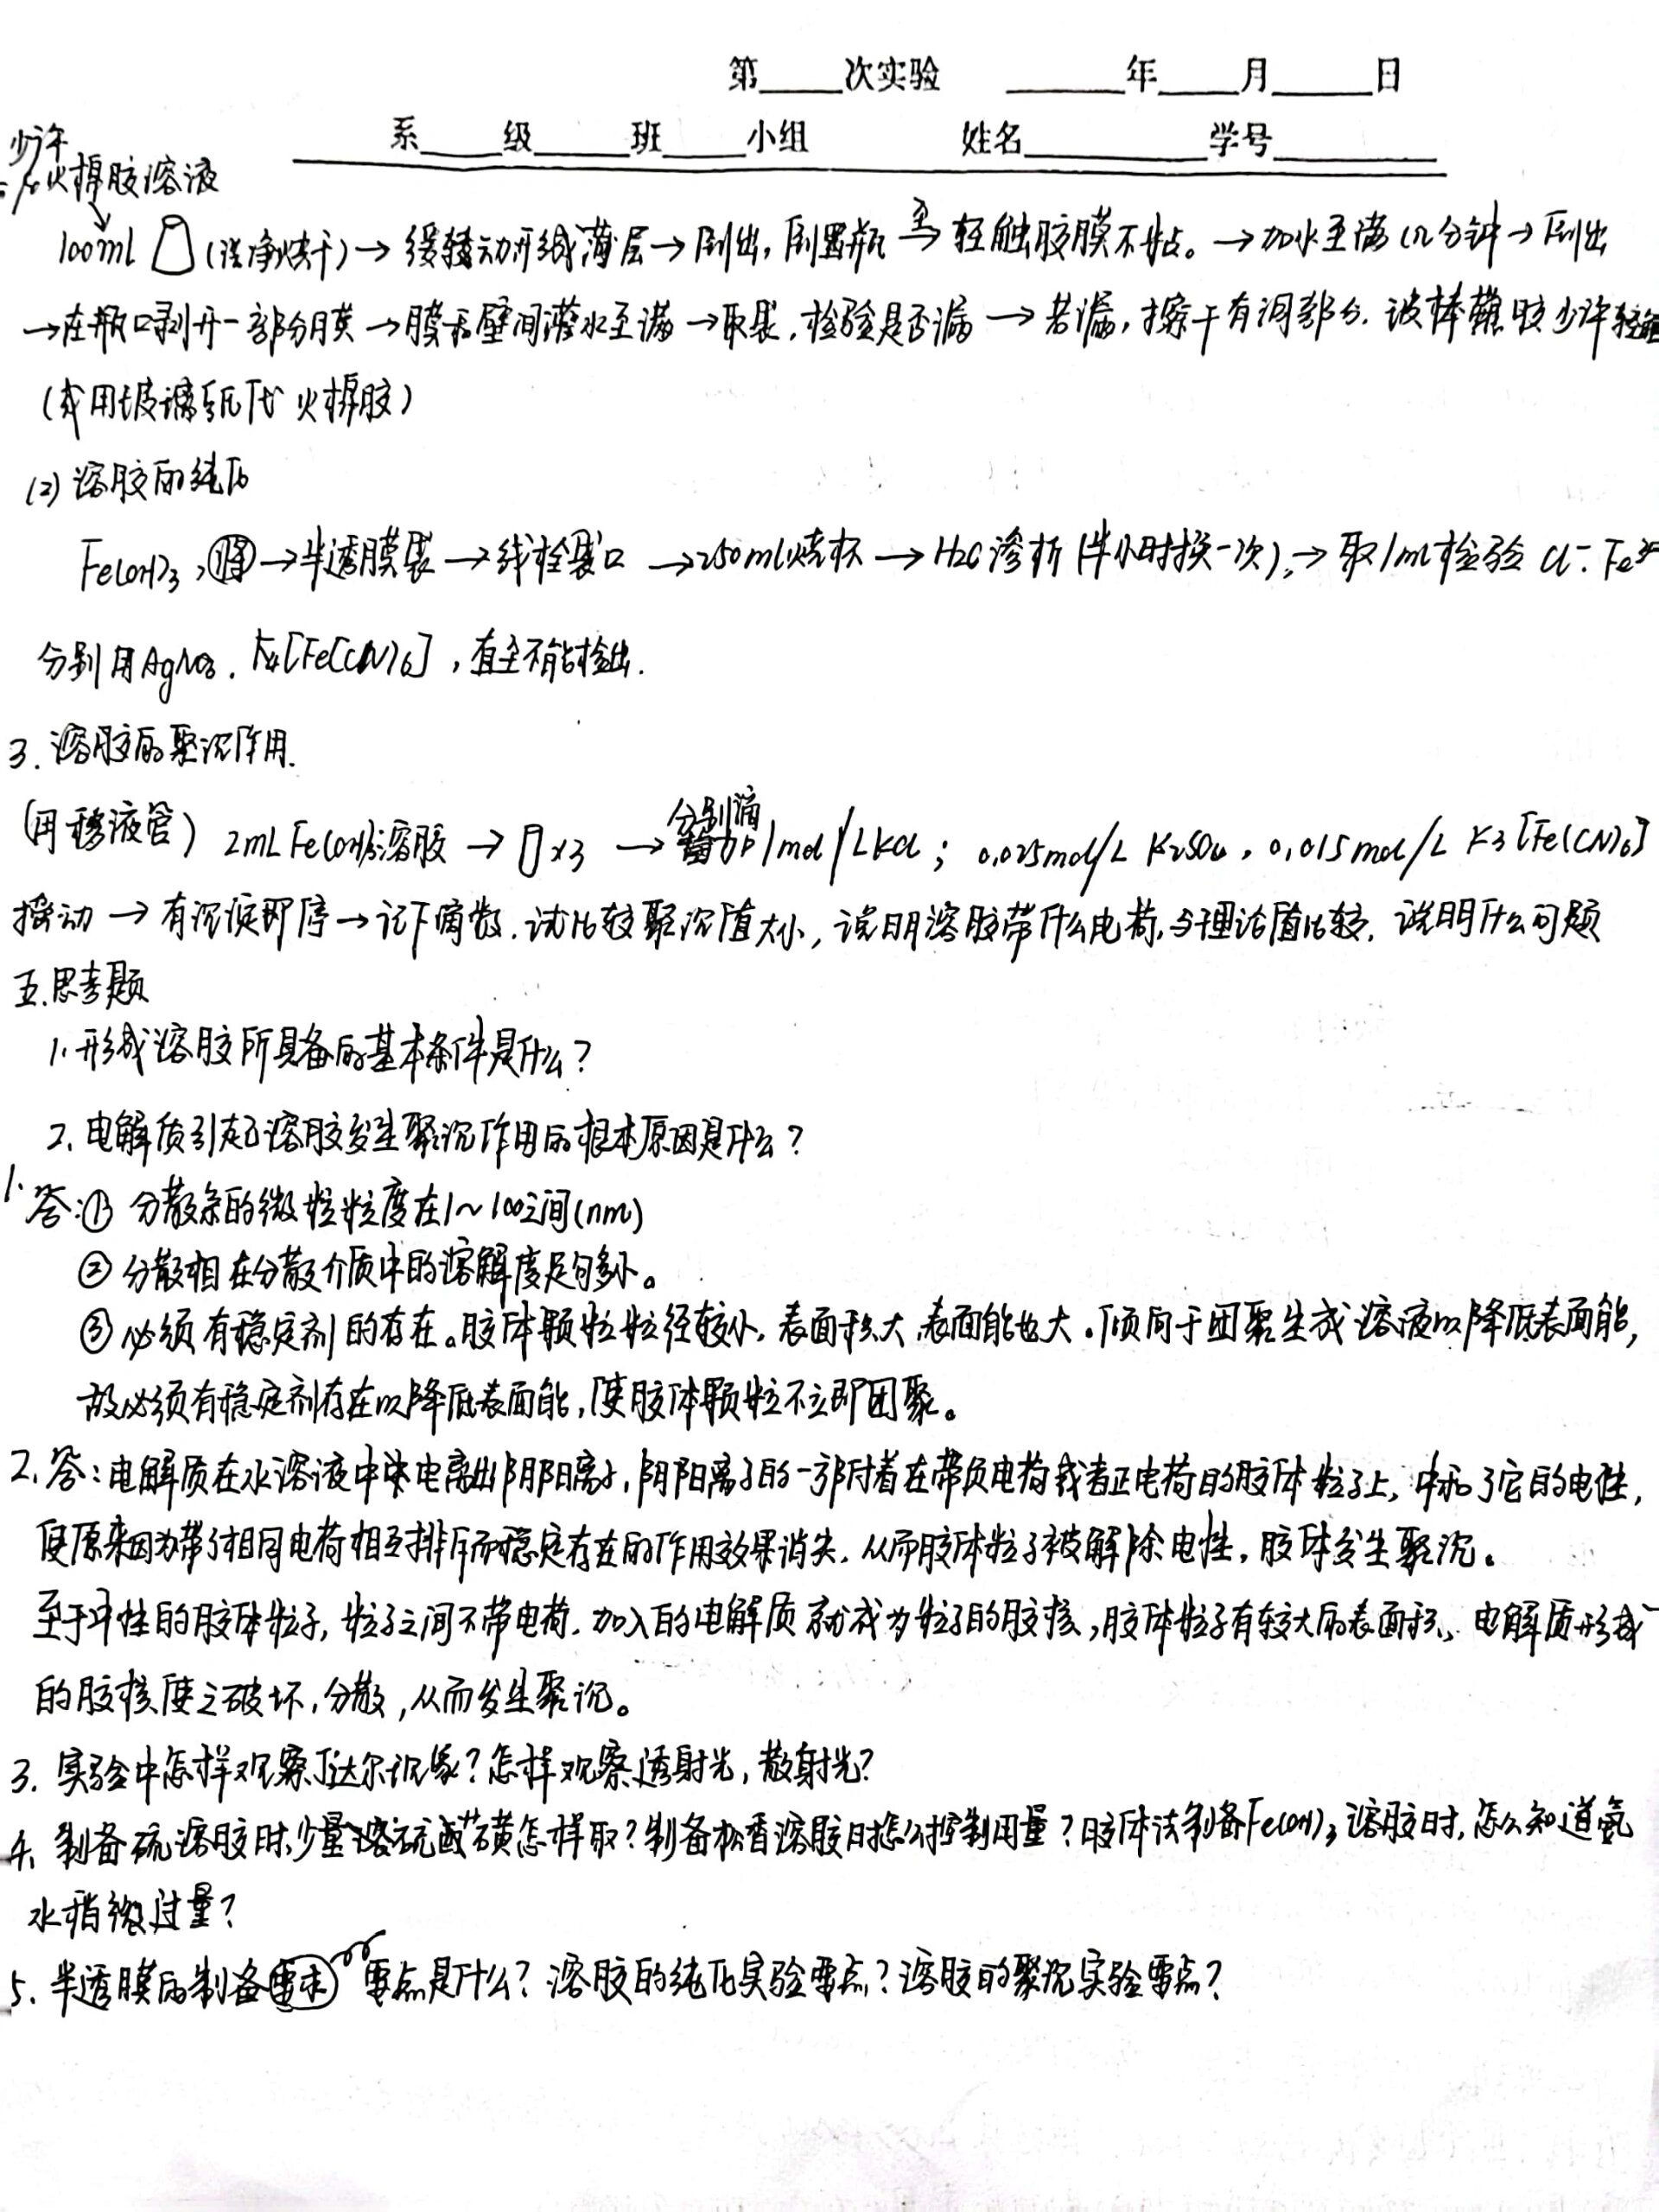 第____次实验 ______年____月_____日
系____级_____班____小组 姓名_________学号________
少许
火棉胶溶液
100ml (洗净烘干)→缓转动形成薄层→倒出,倒置瓶 至→ 轻触胶膜不粘。→加水至满(几分钟→倒出
→在瓶口剥开一部分膜→膜和壁间灌水至满→取袋,检验是否漏→若漏,擦干有洞部分.玻棒蘸胶少许轻触
(或用玻璃纸代火棉胶)
(2)溶胶的纯化
Fe(OH)3,→半透膜袋→线栓袋口→250ml烧杯→H2O渗析(半小时换一次),→取1ml检验Cl-. Fe3+
分别用AgNO3. K4[Fe(CN)6],直至不能检出.
3.溶胶的聚沉作用.
(用移液管) 2mL Fe(OH)3溶胶 → ×3 → 分别滴加1mol/LKCl; 0.025mol/L K2SO4, 0.015mol/L K3[Fe(CN)6]
摇动→有沉淀即停→记下滴数.试比较聚沉值大小,说明溶胶带什么电荷,与理论值比较,说明什么问题
五.思考题
1.形成溶胶所具备的基本条件是什么?
2.电解质引起溶胶发生聚沉作用的根本原因是什么?
1.答:① 分散系的微粒粒度在1~100之间(nm)
② 分散相在分散介质中的溶解度足够小。
③ 必须有稳定剂的存在。胶体颗粒粒径较小,表面积大,表面能也大。倾向于团聚生成溶液以降低表面能,
故必须有稳定剂存在以降低表面能,使胶体颗粒不立即团聚。
2.答:电解质在水溶液中电离出阴阳离子,阴阳离子的一部附着在带负电荷或者正电荷的胶体粒子上,中和了它的电性,
使原来因为带了相同电荷相互排斥而稳定存在的作用效果消失.从而胶体粒子被解除电性,胶体发生聚沉。
至于中性的胶体粒子,粒子之间不带电荷.加入的电解质就成为粒子的胶核,胶体粒子有较大的表面积、电解质形成
的胶核使之破坏,分散,从而发生聚沉。
3.实验中怎样观察丁达尔现象?怎样观察透射光,散射光?
4.制备硫溶胶时,少量硫磺怎样取?制备松香溶胶时怎么控制用量?胶体法制备Fe(OH)3溶胶时,怎么知道氨
水稍微过量?
5.半透膜的制备要点是什么?溶胶的纯化实验要点?溶胶的聚沉实验要点?